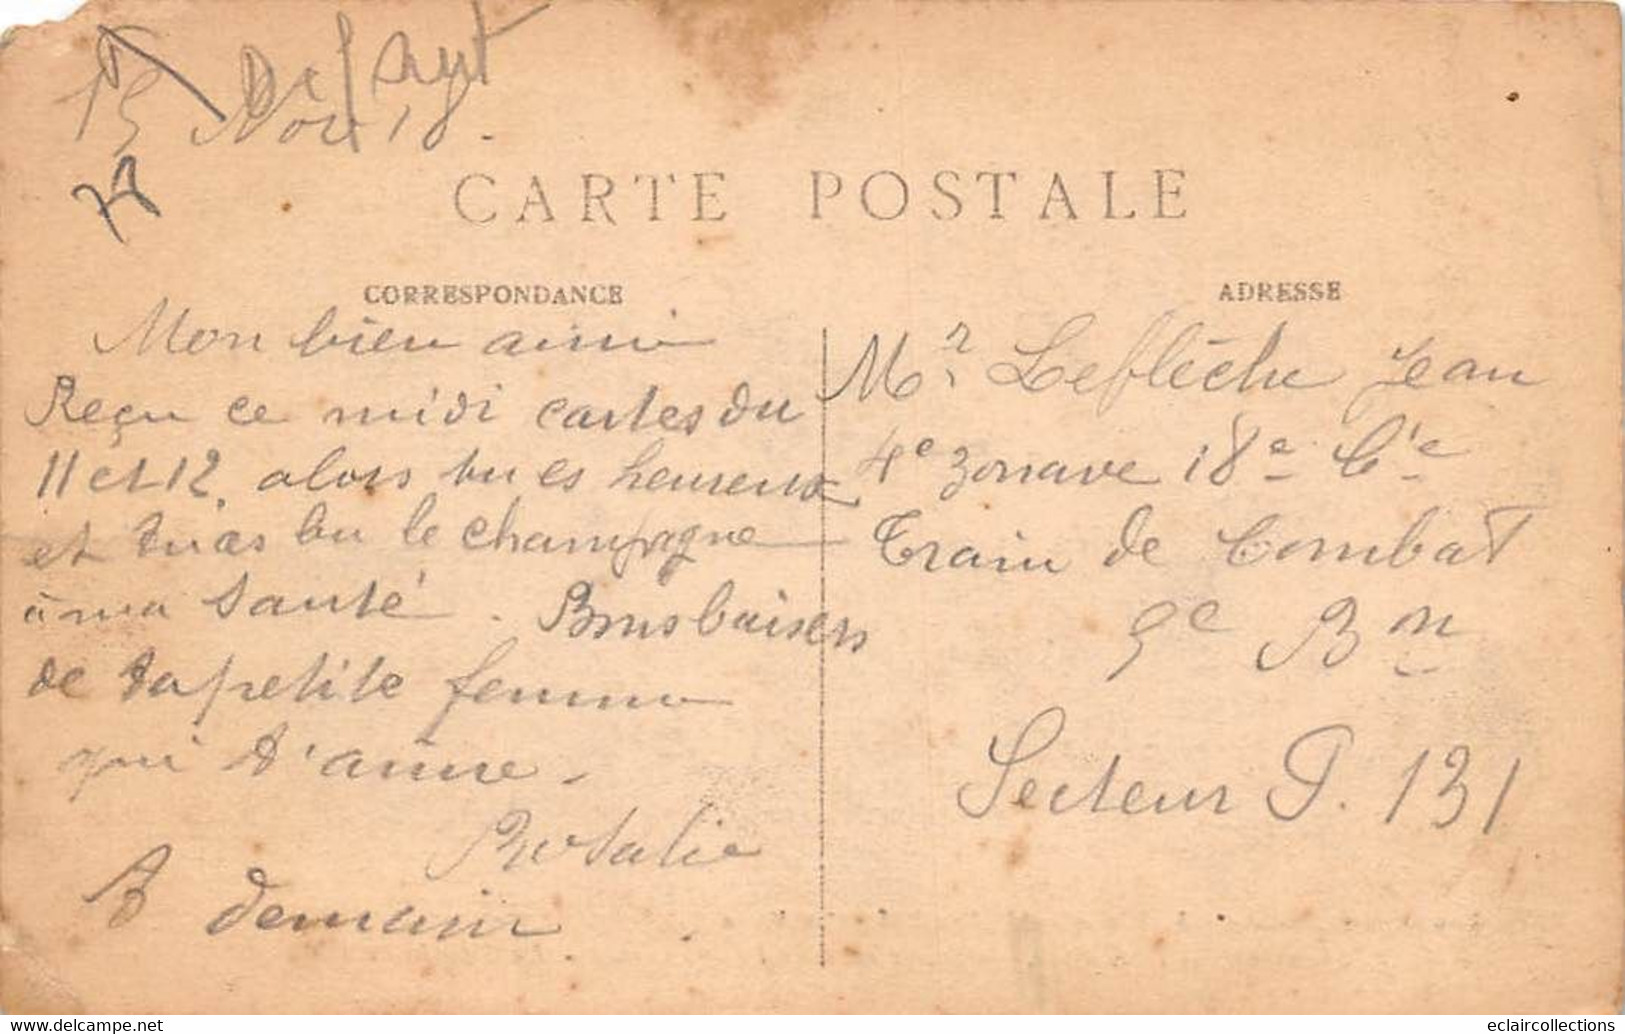 15 Nov 18.
CARTE POSTALE
CORRESPONDANCE
Mon bien aimé
Reçu ce midi cartes du
11 et 12. alors tu es heureux
et tu as bu le champagne
à ma santé. Bons baisers
de ta petite femme
qui t'aime.
Rosalie
A demain
ADRESSE
Mr Leflèche Jean
4e zouave 18e Cie
Train de Combat
5e Bon
Secteur P. 131
www.delcampe.net
eclaircollections